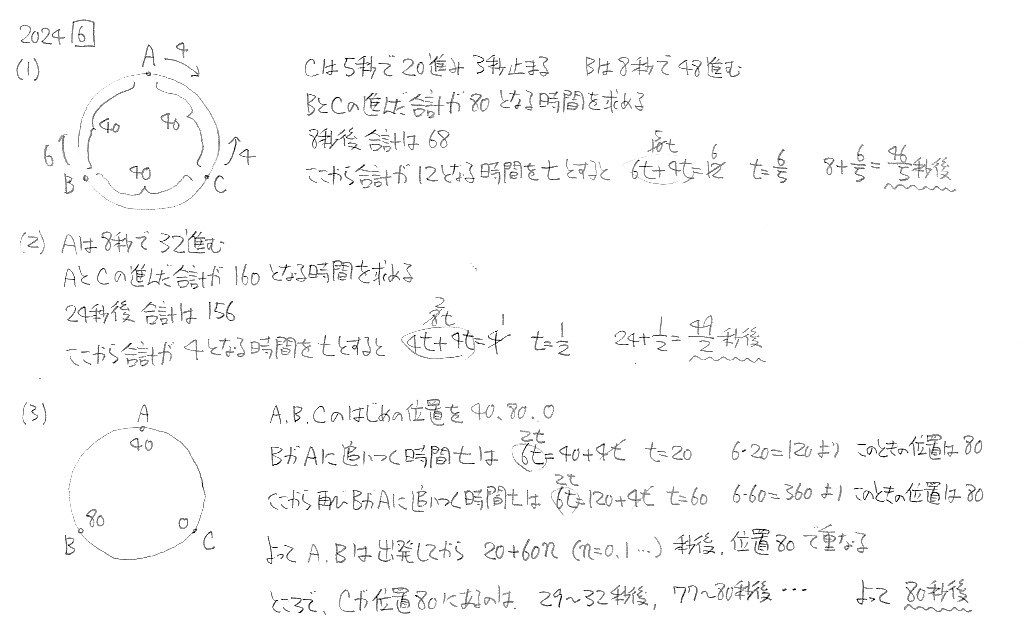 2024 6
(1)
A 4
40 40
6 4
B 40 C
Cは5秒で20進み 3秒止まる Bは8秒で48進む
BとCの進んだ合計が80となる時間を求める
8秒後 合計は68
ここから合計が12となる時間をtとすると 6t+4t=12 6 t=6/5 8+6/5=46/5秒後
(2) Aは8秒で32進む
AとCの進んだ合計が160となる時間を求める
24秒後 合計は156
ここから合計が4となる時間をtとすると 2 8t 4t+4t=4 1 t=1/2 24+1/2=49/2秒後
(3)
A
40
80 0
B C
A.B.Cのはじめの位置を40、80、0
BがAに追いつく時間tは 2t 6t=40+4t t=20 6・20=120より このときの位置は80
ここから再びBがAに追いつく時間tは 2t 6t=120+4t t=60 6・60=360より このときの位置は80
よってA.Bは出発してから 20+60n (n=0.1…) 秒後、位置80で重なる
ところで、Cが位置80にあるのは、29～32秒後, 77～80秒後… よって 80秒後